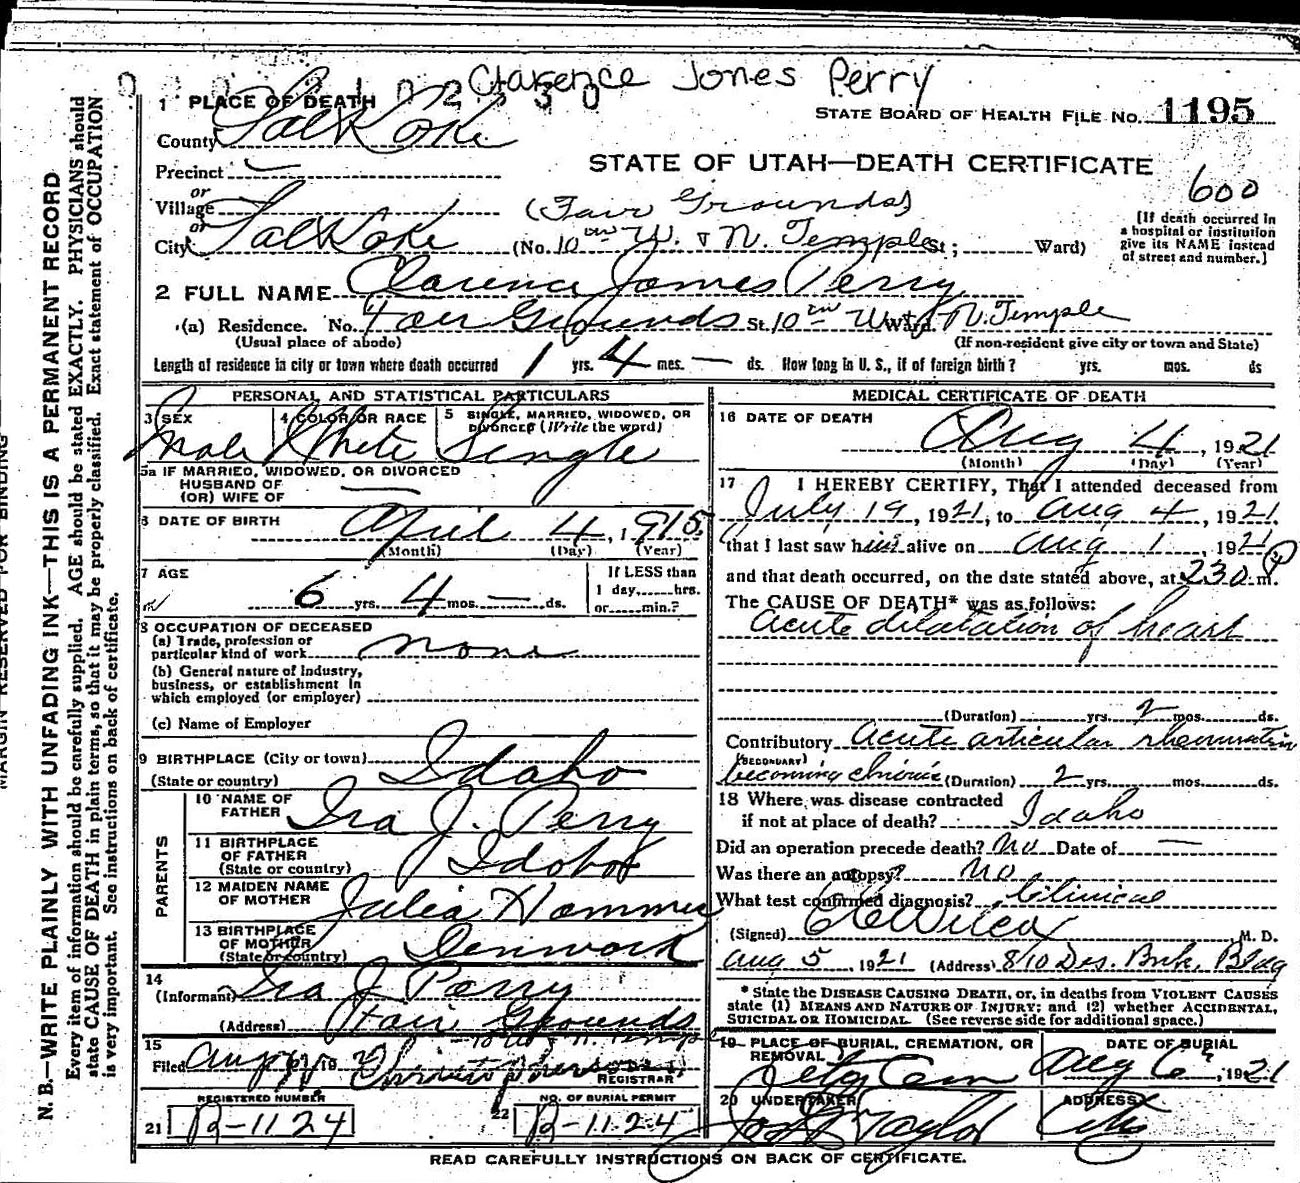 Clarence Jones Perry
1 PLACE OF DEATH
STATE BOARD OF HEALTH FILE No. 1195
County Salt Lake
STATE OF UTAH—DEATH CERTIFICATE
Precinct
600
or
Village (Fair Grounds)
(If death occurred in a hospital or institution give its NAME instead of street and number.]
or
City Salt Lake (No. 10th W. & N. Temple St; Ward)
2 FULL NAME Clarence James Perry
(a) Residence. No. Fair Grounds St. 10th W Ward. N. Temple
(Usual place of abode) (If non-resident give city or town and State)
Length of residence in city or town where death occurred 1 yrs. 4 mos. — ds. How long in U. S., if of foreign birth? yrs. mos. ds
PERSONAL AND STATISTICAL PARTICULARS
3 SEX
Male
4 COLOR OR RACE
White
5 SINGLE, MARRIED, WIDOWED, OR DIVORCED (Write the word)
Single
5a IF MARRIED, WIDOWED, OR DIVORCED
HUSBAND OF
(OR) WIFE OF —
6 DATE OF BIRTH April 4, 1915
(Month) (Day) (Year)
7 AGE
6 yrs. 4 mos. — ds.
If LESS than
1 day,......hrs.
or......min.?
8 OCCUPATION OF DECEASED
(a) Trade, profession or
particular kind of work none
(b) General nature of Industry,
business, or establishment in
which employed (or employer)
(c) Name of Employer
9 BIRTHPLACE (City or town)
(State or country) Idaho
PARENTS
10 NAME OF
FATHER Ira J. Perry
11 BIRTHPLACE
OF FATHER
(State or country) Idaho
12 MAIDEN NAME
OF MOTHER Julia Hammer
13 BIRTHPLACE
OF MOTHER
(State or country) Denmark
14
(Informant) Ira J Perry
(Address) Fair Grounds
10 W & N. Temple
15
Filed Aug 19
REGISTRAR
REGISTERED NUMBER
21 B-1124
NO. OF BURIAL PERMIT
22 B-1124
MEDICAL CERTIFICATE OF DEATH
16 DATE OF DEATH
Aug 4, 1921
(Month) (Day) (Year)
17 I HEREBY CERTIFY, That I attended deceased from
July 19, 1921, to Aug 4, 1921,
that I last saw him alive on Aug 1, 1921
and that death occurred, on the date stated above, at 230 P m.
The CAUSE OF DEATH* was as follows:
Acute dilatation of heart
(Duration) yrs. 2 mos. ds.
Contributory Acute articular rheumatism
(SECONDARY)
becoming chronic (Duration) 2 yrs. mos. ds.
18 Where was disease contracted
if not at place of death? Idaho
Did an operation precede death? No Date of —
Was there an autopsy? No
What test confirmed diagnosis? Clinical
(Signed) Wilcox M. D.
Aug 5, 1921 (Address) 810 Des. Bnk. Bldg
* State the DISEASE CAUSING DEATH, or, in deaths from VIOLENT CAUSES
state (1) MEANS AND NATURE OF INJURY; and (2) whether ACCIDENTAL,
SUICIDAL OR HOMICIDAL. (See reverse side for additional space.)
19 PLACE OF BURIAL, CREMATION, OR
REMOVAL
City Cem
DATE OF BURIAL
Aug 6, 1921
20 UNDERTAKER
Jos Taylor
ADDRESS
City
READ CAREFULLY INSTRUCTIONS ON BACK OF CERTIFICATE.
MARGIN RESERVED FOR BINDING
N. B.—WRITE PLAINLY WITH UNFADING INK—THIS IS A PERMANENT RECORD
Every item of information should be carefully supplied. AGE should be stated EXACTLY. PHYSICIANS should
state CAUSE OF DEATH in plain terms, so that it may be properly classified. Exact statement of OCCUPATION
is very important. See instructions on back of certificate.